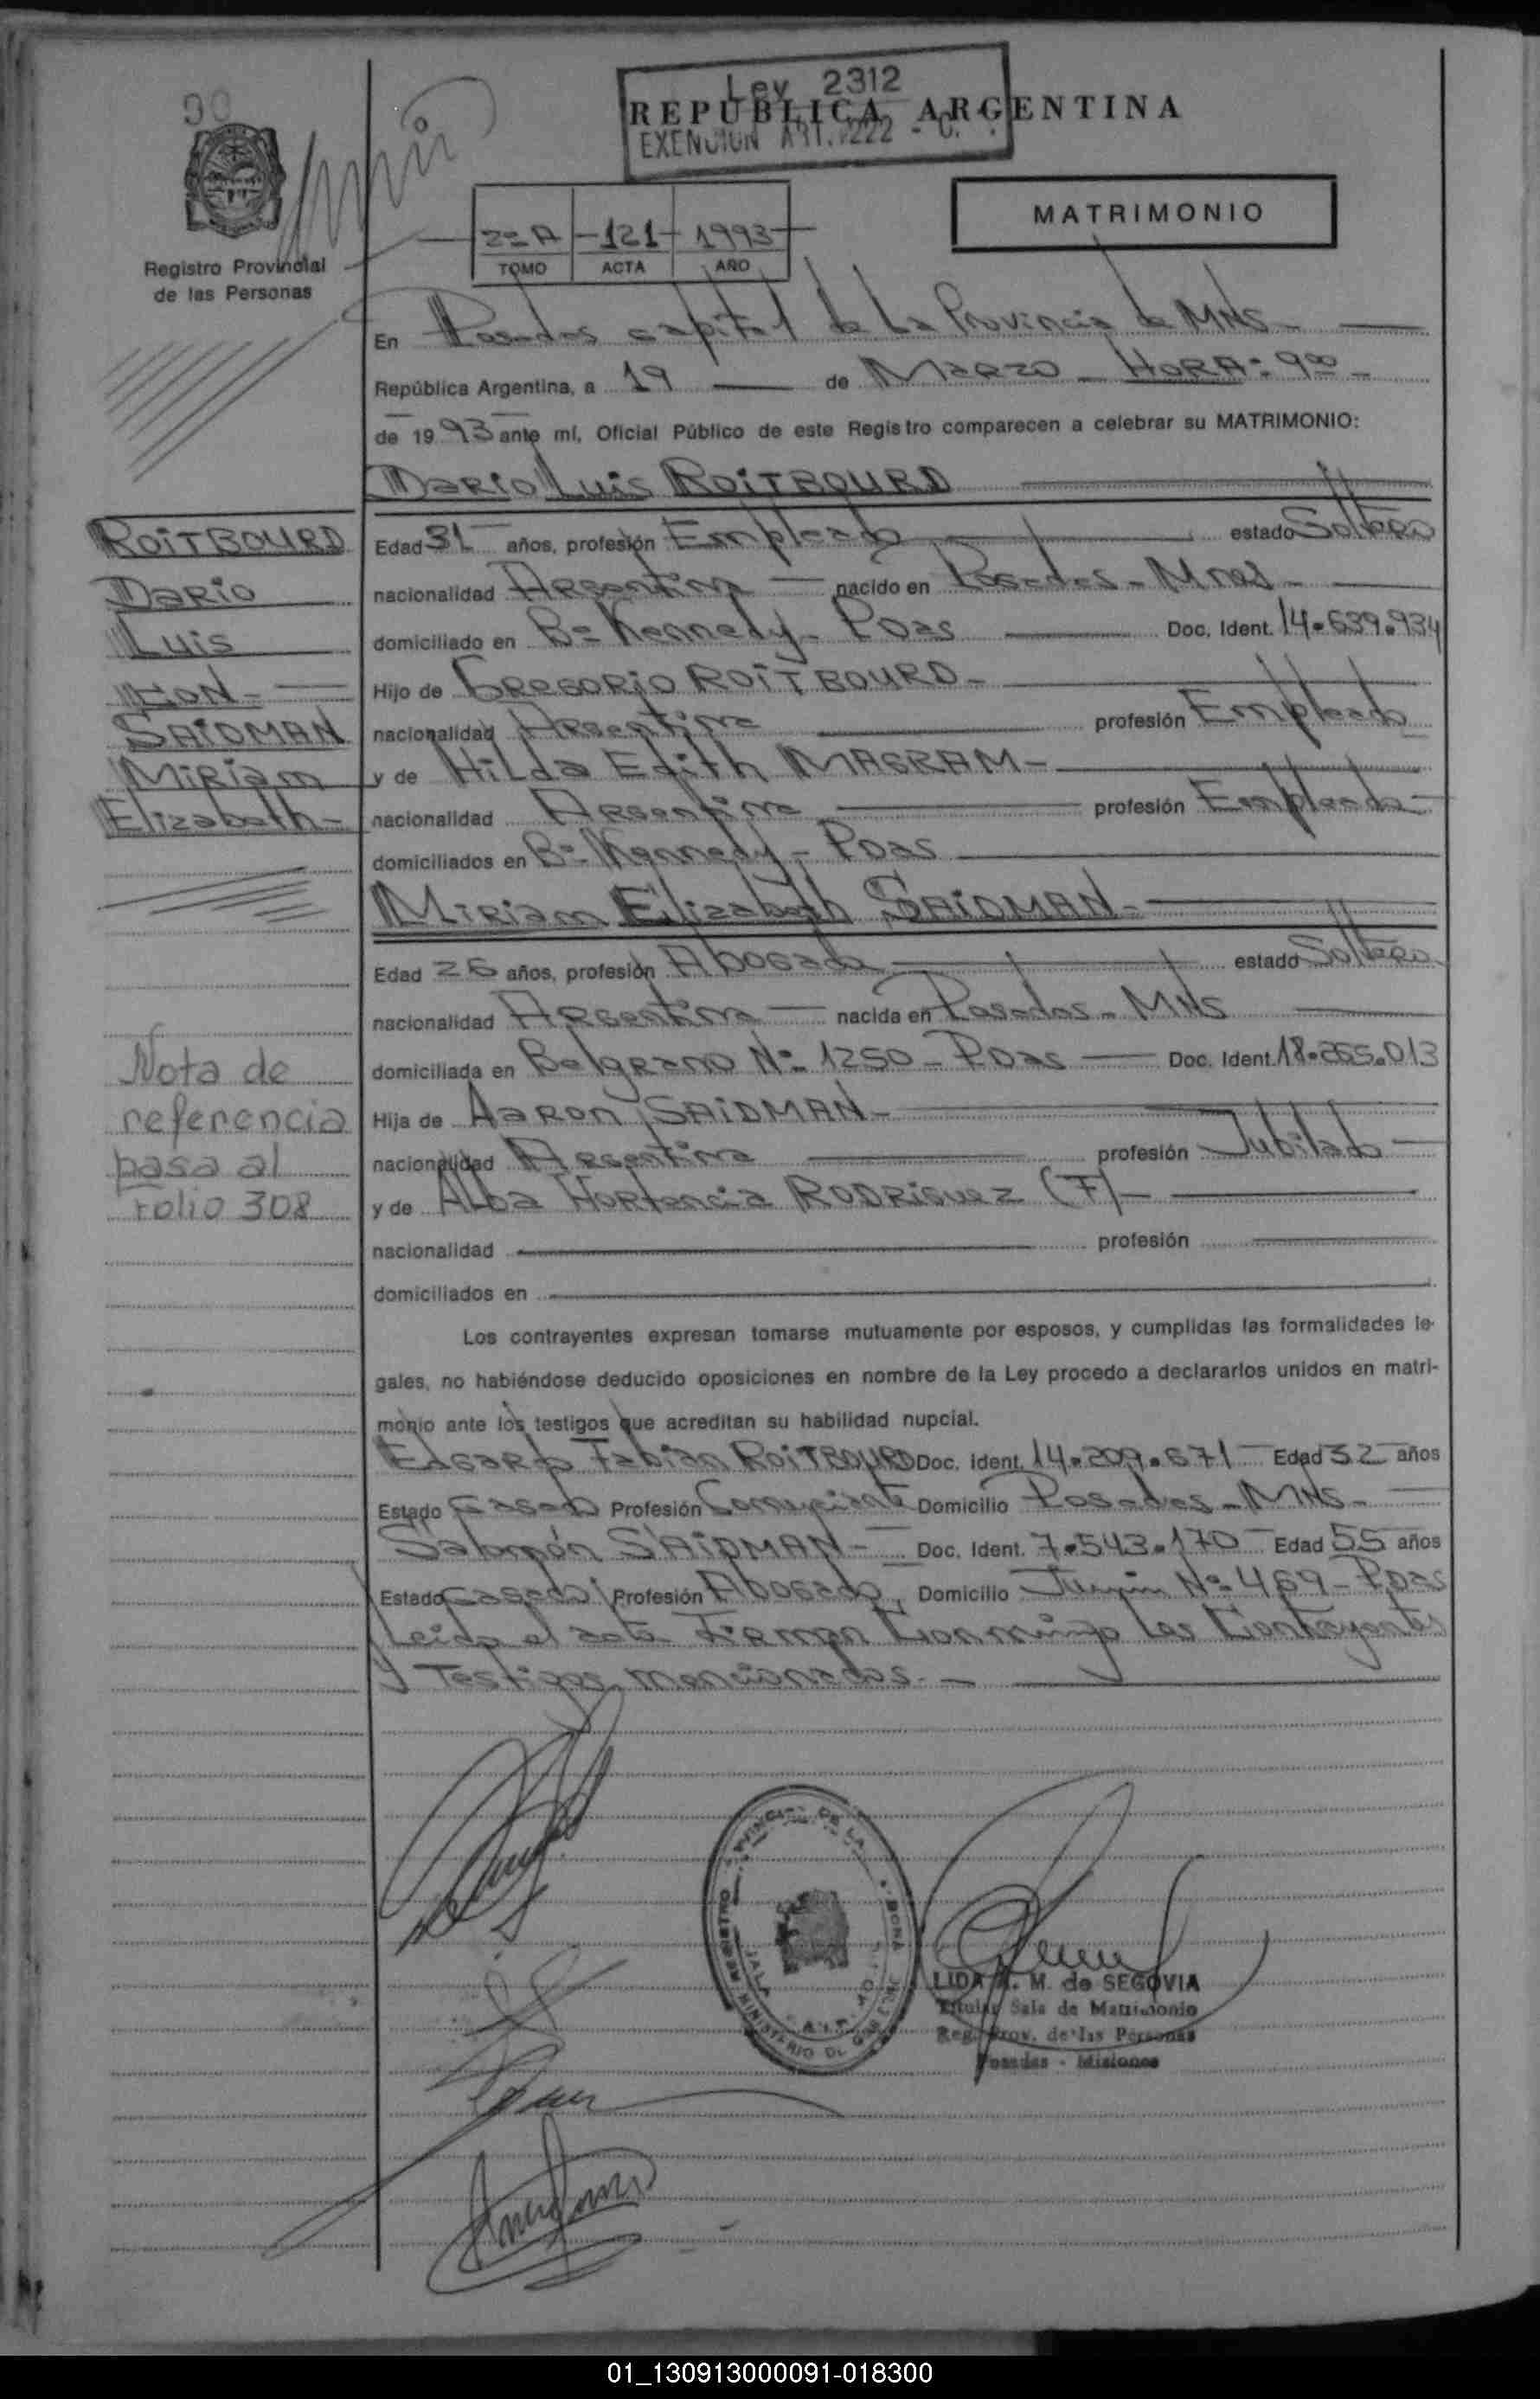 90
Ley 2312
REPUBLICA ARGENTINA
EXENCION ART. 222 - C.
MATRIMONIO
2º A - 121 - 1993
TOMO ACTA AÑO
Registro Provincial
de las Personas
En Posadas capital de La Provincia de MNS
República Argentina, a 19 de Marzo - HORA: 900 -
de 1993 ante mí, Oficial Público de este Registro comparecen a celebrar su MATRIMONIO:
Dario Luis ROITBOURD
Edad 31 años, profesión Empleado estado Soltero
nacionalidad Argentina nacido en Posadas - Mnes -
domiciliado en Bº Kennedy - Pdas Doc. Ident. 14.639.934
Hijo de GREGORIO ROITBOURD -
nacionalidad Argentina profesión Empleado
y de Hilda Edith MAGRAM -
nacionalidad Argentina profesión Empleada
domiciliados en Bº Kennedy - Pdas
Miriam Elizabeth SAIDMAN -
Edad 26 años, profesión Abogada estado Soltera
nacionalidad Argentina nacida en Posadas - MNS
domiciliada en Belgrano Nº 1250 - Pdas Doc. Ident. 18.265.013
Hija de Aaron SAIDMAN -
nacionalidad Argentina profesión Jubilado
y de Alba Hortencia RODRIGUEZ (F) -
nacionalidad profesión
domiciliados en
Los contrayentes expresan tomarse mutuamente por esposos, y cumplidas las formalidades le-
gales, no habiéndose deducido oposiciones en nombre de la Ley procedo a declararlos unidos en matri-
monio ante los testigos que acreditan su habilidad nupcial.
Edgardo Fabian ROITBOURD Doc. Ident. 14.209.671 Edad 32 años
Estado Casado Profesión Comerciante Domicilio Posadas - MNS -
Salomón SAIDMAN - Doc. Ident. 7.543.170 Edad 55 años
Estado Casado Profesión Abogado Domicilio Junín Nº 469 - Pdas
Leida el acta Firman Conmigo Los Contrayentes
y Testigos mencionados. -
ROITBOURD
Dario
Luis
CON -
SAIDMAN
Miriam
Elizabeth -
Nota de
referencia
pasa al
Folio 308
LIDA M. de SEGOVIA
Titular Sala de Matrimonio
Reg. Prov. de las Personas
Posadas - Misiones
01_130913000091-018300